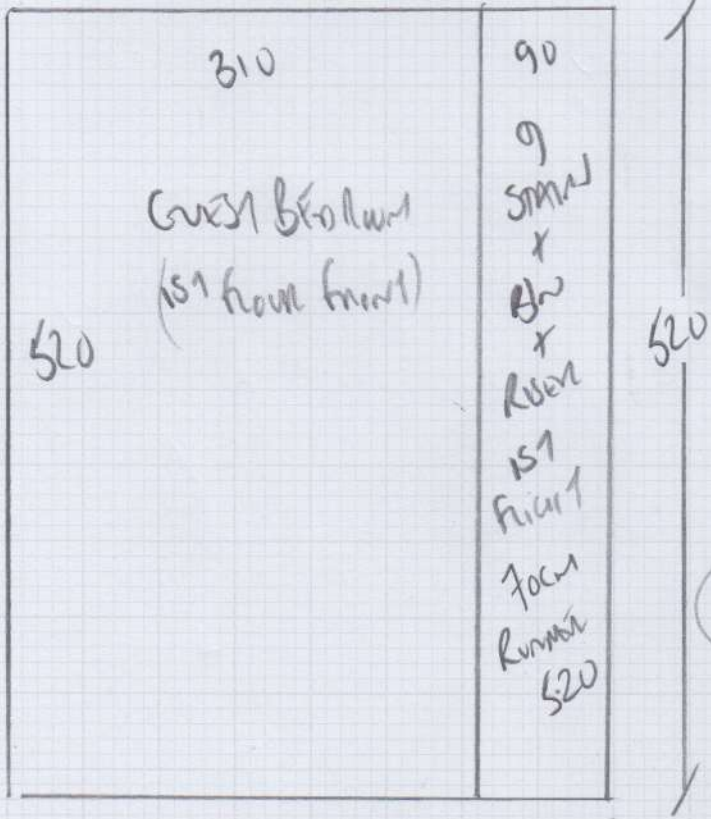 310
GUEST BEDROOM
(1ST FLOOR FRONT)
520
90
9
STAIRS
+
+
RISER
1ST
FLIGHT
70CM
RUNNER
520
520